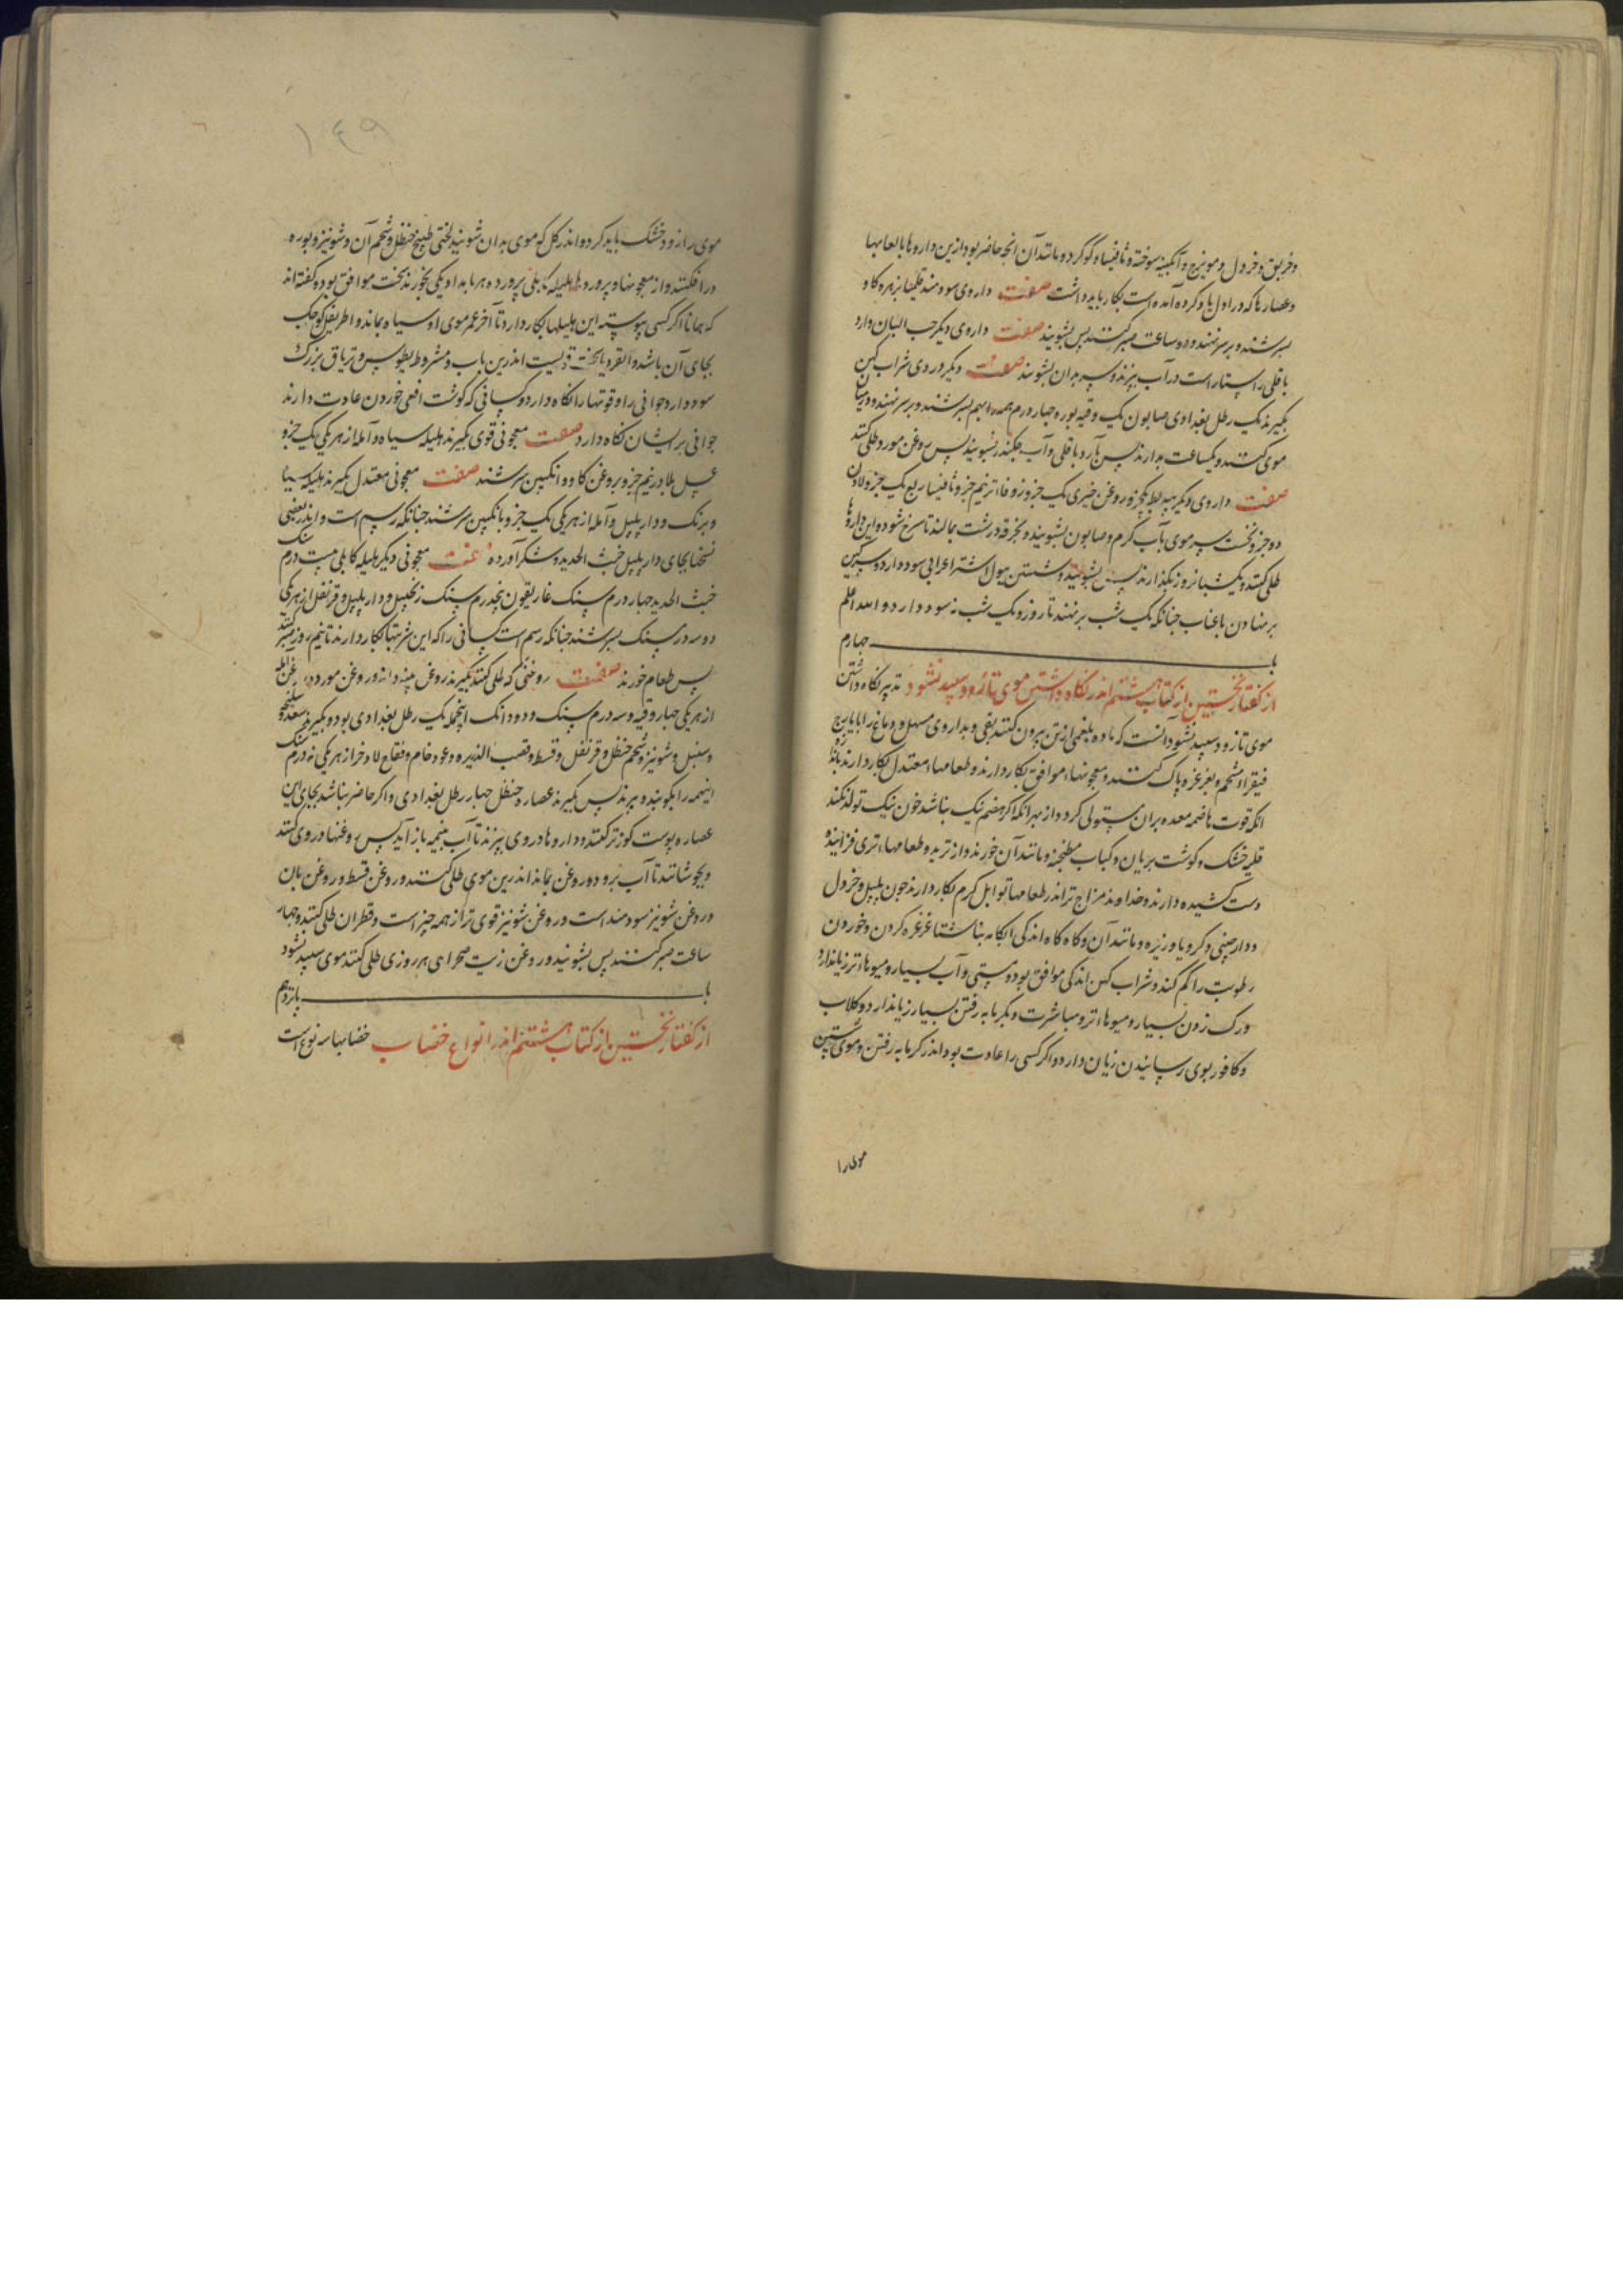 وخربق وخردل ومویزج وآبکینه سوخته وثافیسا وکوکرد ومانند آن انجه حاضر بود ازین داروها بالعابها
وعصارها که در اول یاد کرده آمده است بکار باید داشت صفت داروی سودمند قلیا بزهره کاو
بسرشند وبر سر نهند ودو ساعت صبر کنند پس بشویند صفت داروی دیکر حب البان وارد
باقلی راستاراست در آب بپزند وسر بدان بشویند صفت دیکر دردی شراب کهن
بکیرند یک رطل بغدادی صابون یک وقیه بوره جهار درم همه را بهم بسرشند وبر سر نهند ودر میان
موی کنند ویکساعت بدارند پس بآرد باقلی وآب جکندر بشویند پس روغن مورد طلی کنند
صفت داروی دیکر پیه بط یکجزو روغن خیری یک جزو زوفا تر نیم جزو ثافیسا ربع یک جزو لادن
دو جزو نخست سر موی بآب کرم وصابون بشویند وبخرقه درشت بمالند تا سرخ شود واین داروها
طلی کنند ویک شبانروز بکذارند پس بشویند وشستن ببول اشتر اعرابی سود دارد وسرکین
بر نهادن با عناب جنانکه یک شب بر نهند تا روز ویک شب نه سود دارد والله اعلم
باب جهارم
از کفتار نخستین از کتاب هشتم اندر نکاه داشتن موی تا زود سپید نشود تدبیر نکاه داشتن
موی تا زود سپید نشود آنست که ماده بلغمی از تن برون کنند بقی وبداروی مسهل ودماغ را بایارج
فیقرا وشحم وبغرغره پاک کنند ومعجونهاء موافق بکار دارند وطعامهاء معتدل بکار دارند
انکه قوت هاضمه معده بران مستولی کردد از بهر انکه اکر هضم نیک نباشد خون نیک تولد نکند
قلیه خشک وکوشت بریان وکباب ومطنجنه ومانند آن خورند واز ترید وطعامهاء تری فزاینده
دست کشیده دارند وخداوند مزاج تر اندر طعامها توابل کرم بکار دارند جون پلپل وخردل
ودارجینی وکرویا وزیره ومانند آن وکاه کاه اندکی ابکامه بناشتا غرغره کردن وخوردن
رطوبت را کم کند وشراب کهن اندکی موافق بود ومستی وآب بسیار ومیوهاء تر زیاندارد
ورک زدن بسیار ومیوهاء تر ومباشرت وبکرمابه رفتن بسیار زیاندارد وکلاب
وکافور بموی رسانیدن زیان دارد واکر کسی را عادت بود اندر کرمابه رفتن وموی شستن
موی را
۱۴۹
موی را زود خشک باید کرد واندر کل که موی بدان شویند لختی طبیخ حنظل وشحم آن وشونیز وبوره
در افکنند واز معجونها وپرورده‌ها هلیله کابلی پرورده هر بامداد یکی بخورند سخت موافق بود وکفته اند
که همانا اکر کسی پیوسته این هلیلها بکار دارد تا آخر عمر موی او سیاه بماند واطریفل کوجک
بجای آن باشد وانقردیا سخت قویست اندرین باب ومثرودیطوس وتریاق بزرک
سود دارد وجوانی را وقوتها را نکاه دارد وکسانی که کوشت افعی خوردن عادت دارند
جوانی بر ایشان نکاه دارد صفت معجونی قوی بکیرند هلیله سیاه وآمله از هر یکی یک جزو
عسل بلادر نیم جزو بروغن کاو وانکبین بسرشند صفت معجونی معتدل بکیرند هلیله سیاه
وبرنک ودار پلپل وآمله از هر یکی یک جزو بانکبین بسرشند جنانکه رسم است واندر بعضی
نسختها بجای دار پلپل خبث الحدید وشکر آورده صفت معجونی دیکر هلیله کابلی بیست درم سنک
خبث الحدید جهار درم سنک غاریقون پنجدرم سنک زنجبیل ودار پلپل وقرنفل از هر یکی
دو سه درم سنک بسرشند جنانکه رسم است کسانی را که این شربتها بکار دارند تا نیم روز صبر کنند
پس طعام خورند صفت روغنی که طلی کنند بکیرند روغن پنبه دانه وروغن مورد وروغن آمله
از هر یکی جهار وقیه وسه درم سنک ودو دانک اینجمله یک رطل بغدادی بود وبکیرند سعد وسلیخه
وسنبل وشونیز وشحم حنظل وقرنفل وقسط وقصب الذریره وعود خام وفقاح اذخر از هر یکی نه درم سنک
اینهمه را بکوبند وبپزند پس بکیرند عصاره حنظل جهار رطل بغدادی واکر حاضر نباشد بجای این
عصاره پوست کوز تر کنند وداروها در وی بپزند تا آب بنیمه باز آید پس روغنها در وی کنند
وبجوشانند تا آب برود وروغن بماند اندرین موی طلی کنند وروغن قسط وروغن بان
وروغن شونیز سودمند است وروغن شونیز قوی تر از همه جیز است وقطران طلی کنند وجهار
ساعت صبر کنند پس بشویند وروغن زیت صحرای هر روزی طلی کنند موی سپید نشود
باب پانزدهم
از کفتار نخستین از کتاب هشتم اندر انواع خضاب خضابها سه نوع است